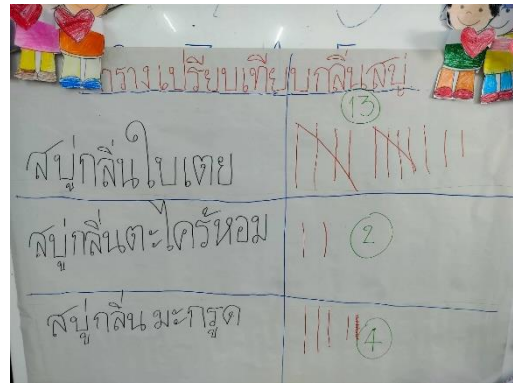 ตารางเปรียบเทียบกลิ่นสบู่
13
สบู่กลิ่นใบเตย
สบู่กลิ่นตะไคร้หอม 2
สบู่กลิ่นมะกรูด 4